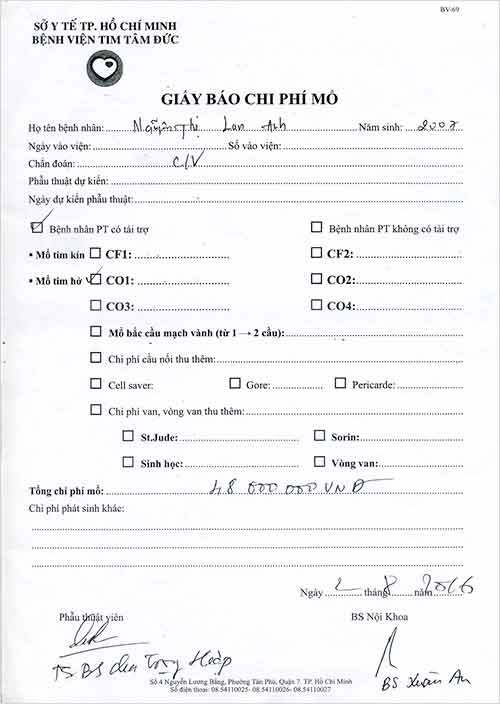 BV-69
SỞ Y TẾ TP. HỒ CHÍ MINH
BỆNH VIỆN TIM TÂM ĐỨC
GIẤY BÁO CHI PHÍ MỔ
Họ tên bệnh nhân: Nguyễn Thị Lan Anh Năm sinh: 2007
Ngày vào viện: Số vào viện:
Chẩn đoán: C/V
Phẫu thuật dự kiến:
Ngày dự kiến phẫu thuật:
Bệnh nhân PT có tài trợ Bệnh nhân PT không có tài trợ
• Mổ tim kín CF1: CF2:
• Mổ tim hở CO1: CO2:
CO3: CO4:
Mổ bắc cầu mạch vành (từ 1 → 2 cầu):
Chi phí cầu nối thu thêm:
Cell saver: Gore: Pericarde:
Chi phí van, vòng van thu thêm:
St.Jude: Sorin:
Sinh học: Vòng van:
Tổng chi phí mổ: 48 000 000 VNĐ
Chi phí phát sinh khác:
Ngày 2 tháng 8 năm 2016
Phẫu thuật viên BS Nội Khoa
TS BS Trọng Hiệp
BS Xuân An
Số 4 Nguyễn Lương Bằng, Phường Tân Phú, Quận 7. TP. Hồ Chí Minh
Số điện thoại: 08.54110025- 08.54110026- 08.54110027